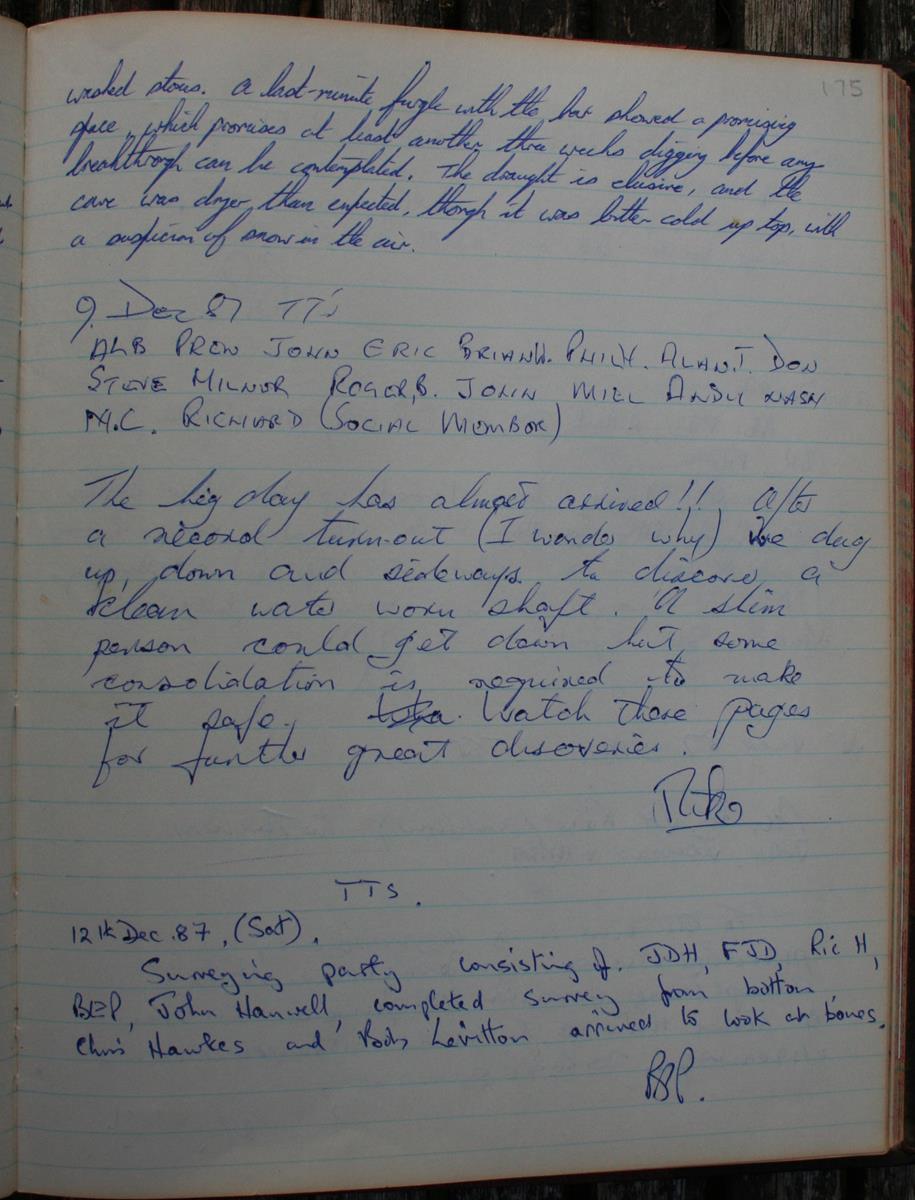 175
washed stones. A last-minute furgle with the bar showed a promising
space, which promises at least another three weeks digging before any
breakthrough can be contemplated. The draught is elusive, and the
cave was dryer than expected, though it was bitter cold up top, with
a suspicion of snow in the air.
9. Dec 87 TT's
ALB PREW JOHN ERIC BRIAN. PHILH. ALAN.T. DON
STEVE MILNER ROGER.B. JOHN MILL ANDY NASH
M.C. RICHARD (SOCIAL MEMBER)
The big day has almost arrived!! After
a record turn-out (I wonder why) we dug
up, down and sideways to discover a
clean water worn shaft. A slim
person could get down but some
consolidation is required to make
it safe. Watch these pages
for further great discoveries.
TTS.
12th Dec .87, (Sat).
Surveying party consisting of. JDH, FJD, Ric H,
BEP, John Hanwell, completed survey from bottom,
Chris Hawkes and Bob Levitton arrived to look at bones.
BEP.